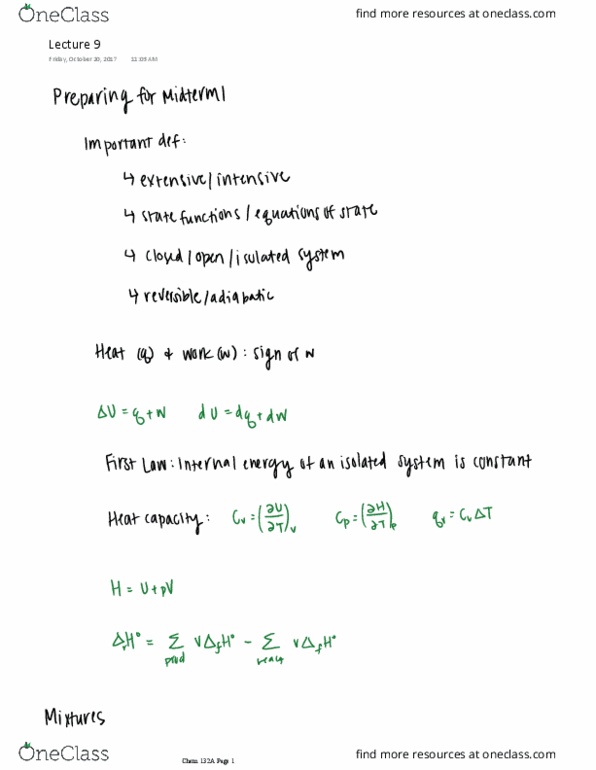 OneClass
find more resources at oneclass.com
Lecture 9
Friday, October 20, 2017 11:09 AM
Preparing for Midterm 1
Important def:
↳ extensive/intensive
↳ state functions / equations of state
↳ closed/open/isolated system
↳ reversible/adiabatic
Heat (q) + work (w) : sign of w
ΔU = q + w dU = dq + dw
First Law: Internal energy of an isolated system is constant
Heat capacity: Cv = (∂U/∂T)v Cp = (∂H/∂T)p qv = CvΔT
H = U + pV
ΔrH° = Σ prod νΔfH° - Σ react νΔfH°
Mixtures
OneClass
Chem 132A Page 1
find more resources at oneclass.com